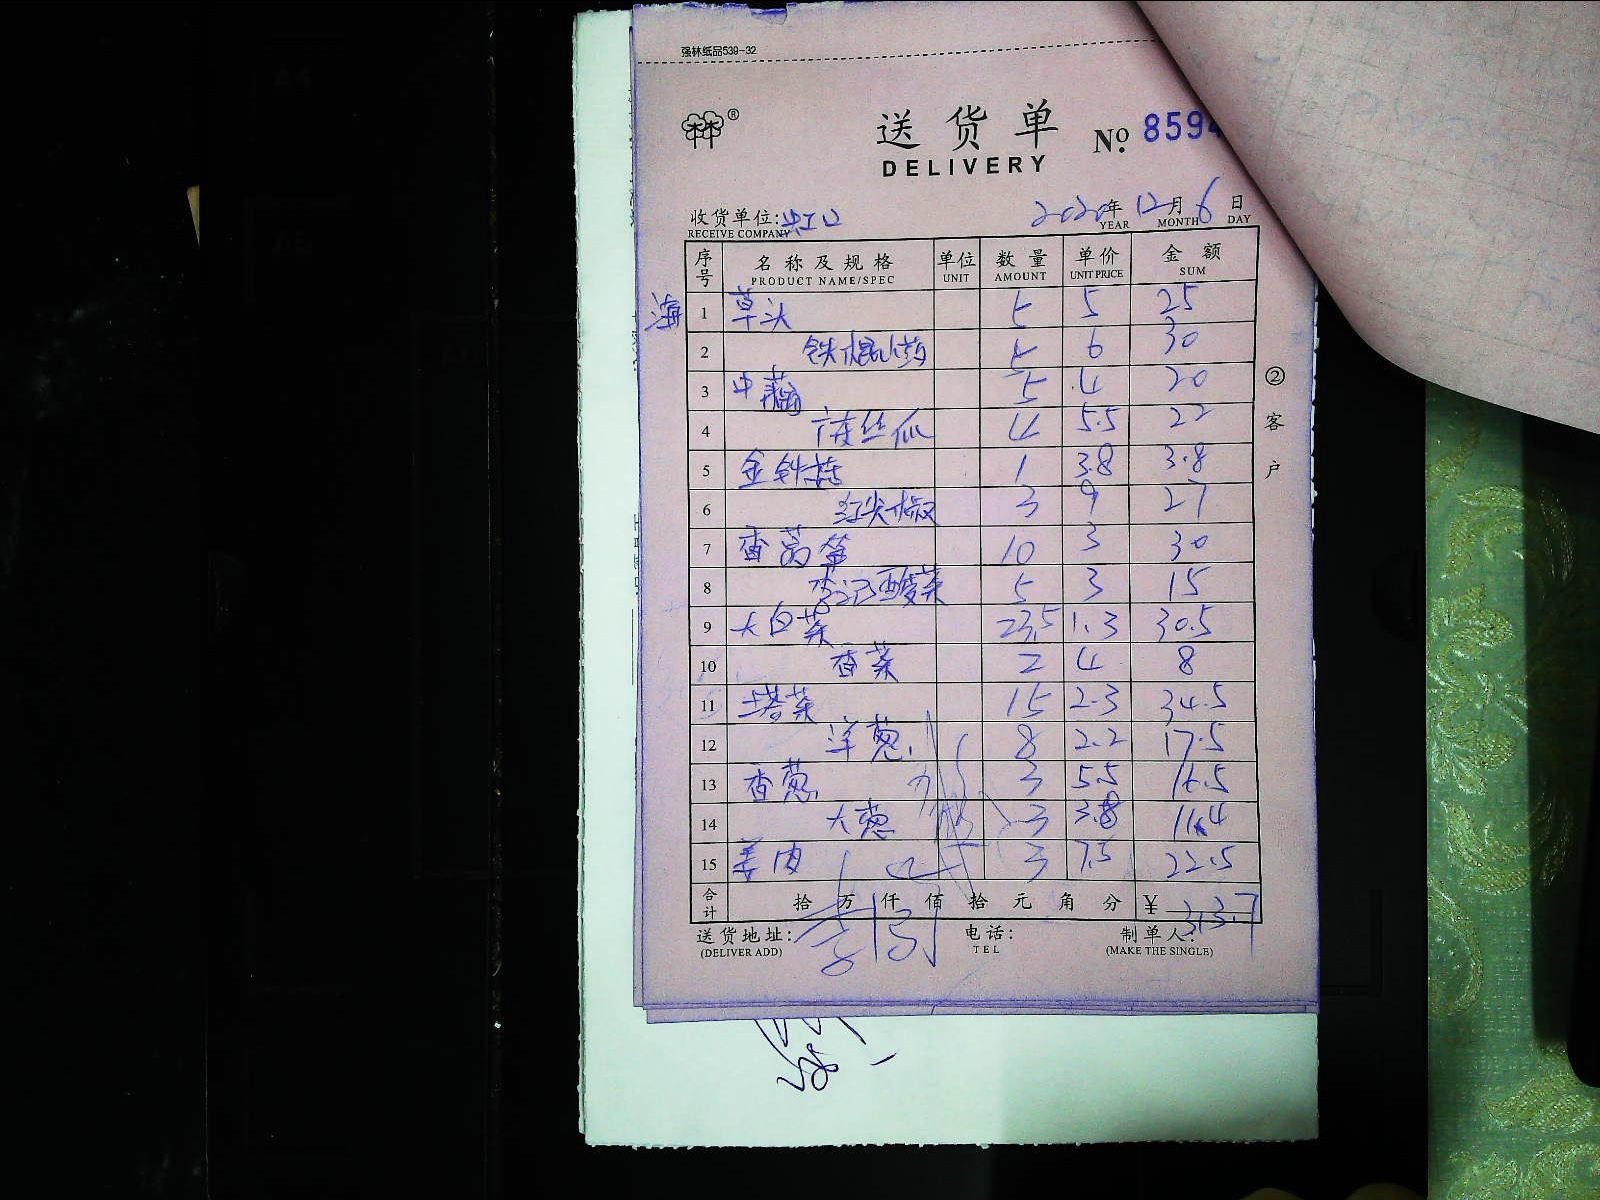 强林纸品539-32
林®
送货单
DELIVERY
No. 8594
收货单位:虹口 2020年12月6日
RECEIVE COMPANY YEAR MONTH DAY
序号 名称及规格 单位 数量 单价 金额
PRODUCT NAME/SPEC UNIT AMOUNT UNIT PRICE SUM
海 1 草头 5 5 25
2 铁棍山药 5 6 30
3 中藕 5 4 20
4 丝瓜 4 5.5 22
5 金针菇 1 3.8 3.8
6 红尖椒 3 9 27
7 香莴笋 10 3 30
8 李记酸菜 5 3 15
9 大白菜 23.5 1.3 30.5
10 香菜 2 4 8
11 塔菜 15 2.3 34.5
12 洋葱 8 2.2 17.5
13 香葱 3 5.5 16.5
14 大葱 3 3.8 11.4
15 姜肉 3 7.5 22.5
合计 拾 万 仟 佰 拾 元 角 分 ¥ 313.7
送货地址: 电话: 制单人:
(DELIVER ADD) TEL (MAKE THE SINGLE)
②客户